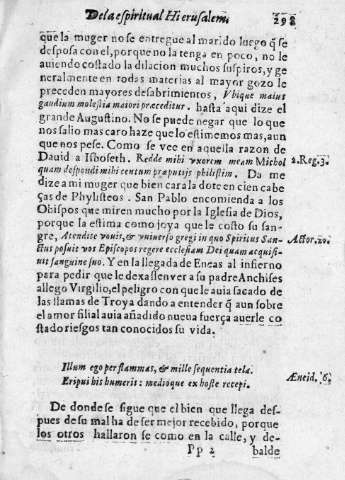 De la espiritual Hierusalem. 298
que la muger no se entregue al marido luego q̃ se
desposa con el, porque no la tenga en poco, no le
auiendo costado la dilacion muchos suspiros, y ge
neralmente en todas materias al mayor gozo le
preceden mayores desabrimientos, Vbique maius
gaudium molestia maiori præceditur. hasta aqui dize el
grande Augustino. No se puede negar que lo que
nos salio mas caro haze que lo estimemos mas, aun
que nos pese. Como se vee en aquella razon de
Dauid a Isboseth. Redde mihi vxorem meam Michol 2.Reg.3.
quam despondi mihi centum præputijs philistim. Da me
dize a mi muger que bien cara la dote en cien cabe
ças de Phylisteos. San Pablo encomienda a los
Obispos que miren mucho por la Iglesia de Dios,
porque la estima como joya que le costo su san-
gre, Attendite vouis, & vniuerso gregi in quo Spiritus San- Actor.20.
ctus posuit vos Episcopos regere ecclesiam Dei quam acquisi-
uit sanguine suo. Y en la llegada de Eneas al infierno
para pedir que le dexassen ver a su padre Anchises
allego Virgilio, el peligro con que le auia sacado de
las llamas de Troya dando a entender q̃ aun sobre
el amor filial auia añadido nueua fuerça auerle co
stado riesgo tan conocidos su vida.
Illum ego per flammas, & mille sequentia tela.
Eripui his humeris: medioque ex hoste recepi. Æneid. 6.
De donde se sigue que el bien que llega des-
pues de su mal ha de ser mejor recebido, porque
los otros hallaron se como en la calle, y de-
Pp 2 balde